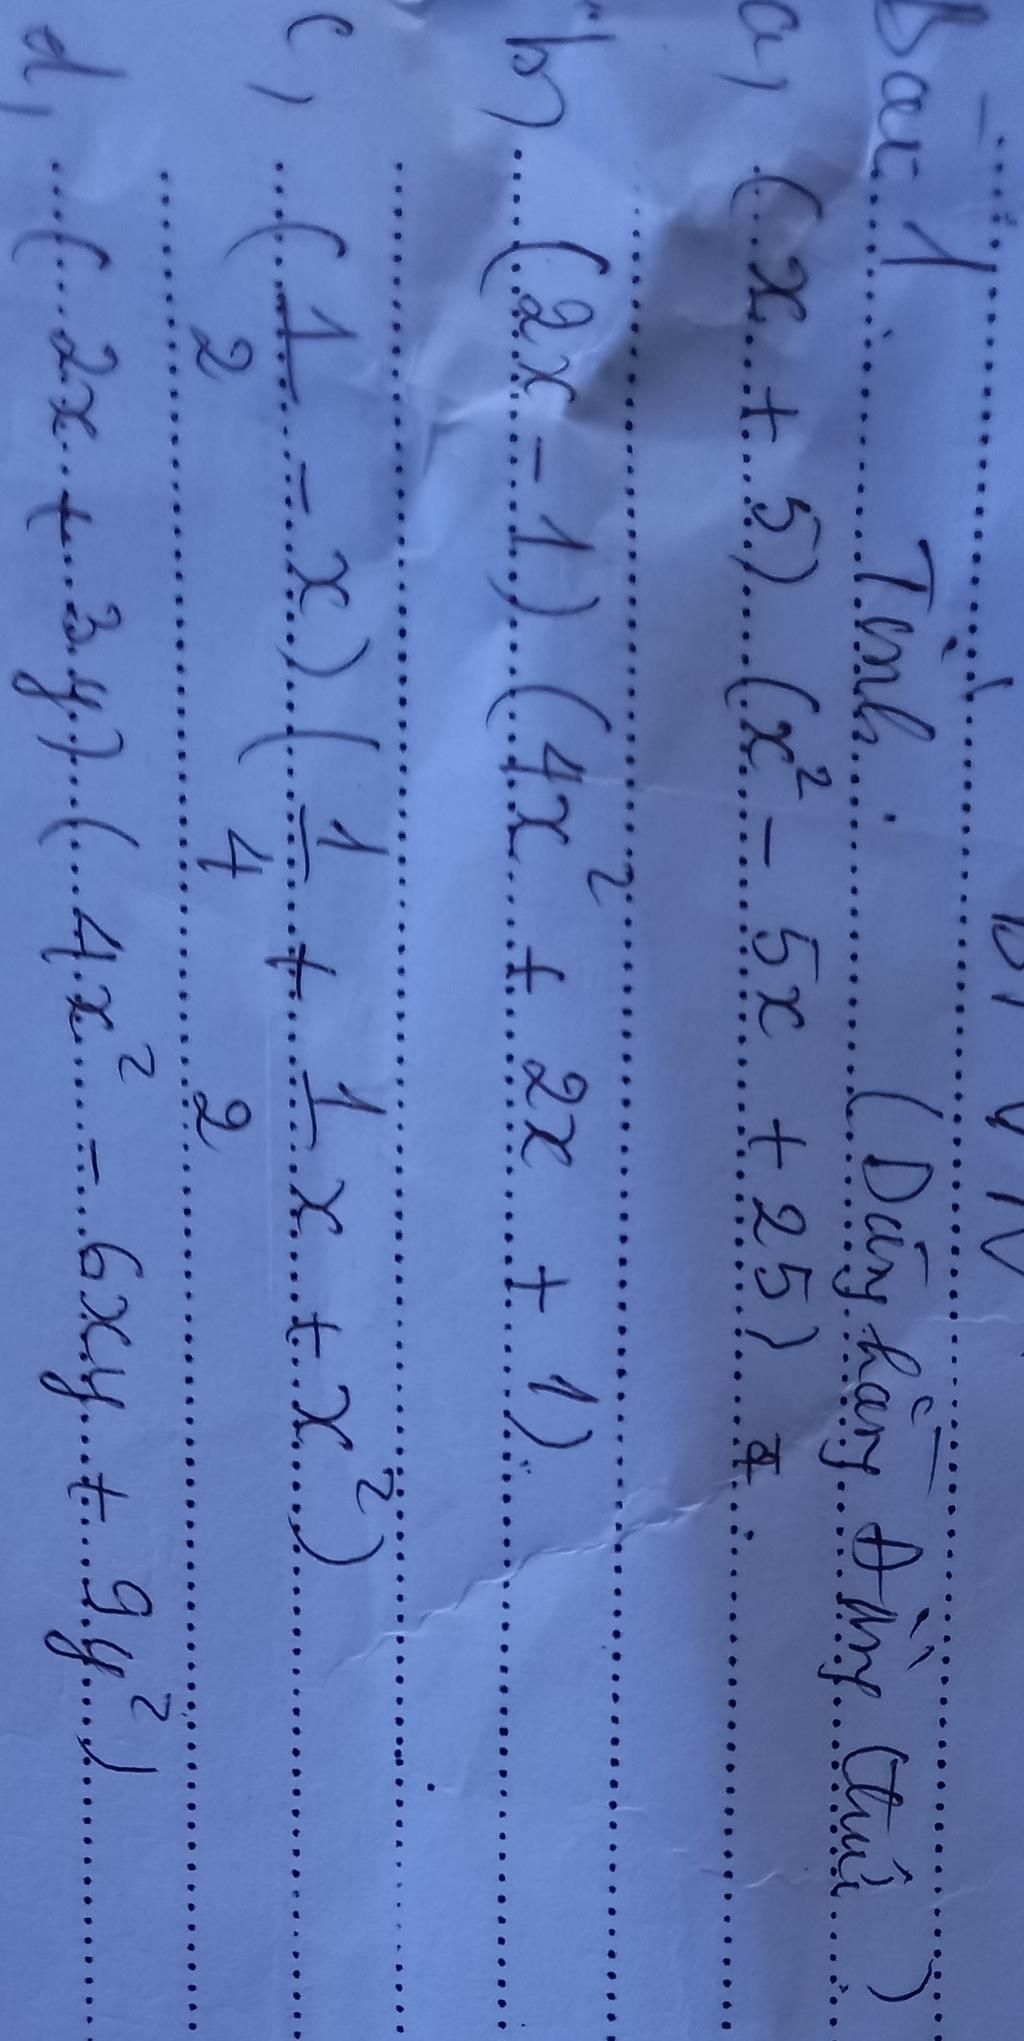 Bài 1 Tính. (Dùng hằng đẳng thức)
a, (x + 5) (x² - 5x + 25)
b) (2x - 1) (4x² + 2x + 1)
c, (1/2 - x) (1/4 + 1/2 x + x²)
d, (2x + 3y) (4x² - 6xy + 9y²)